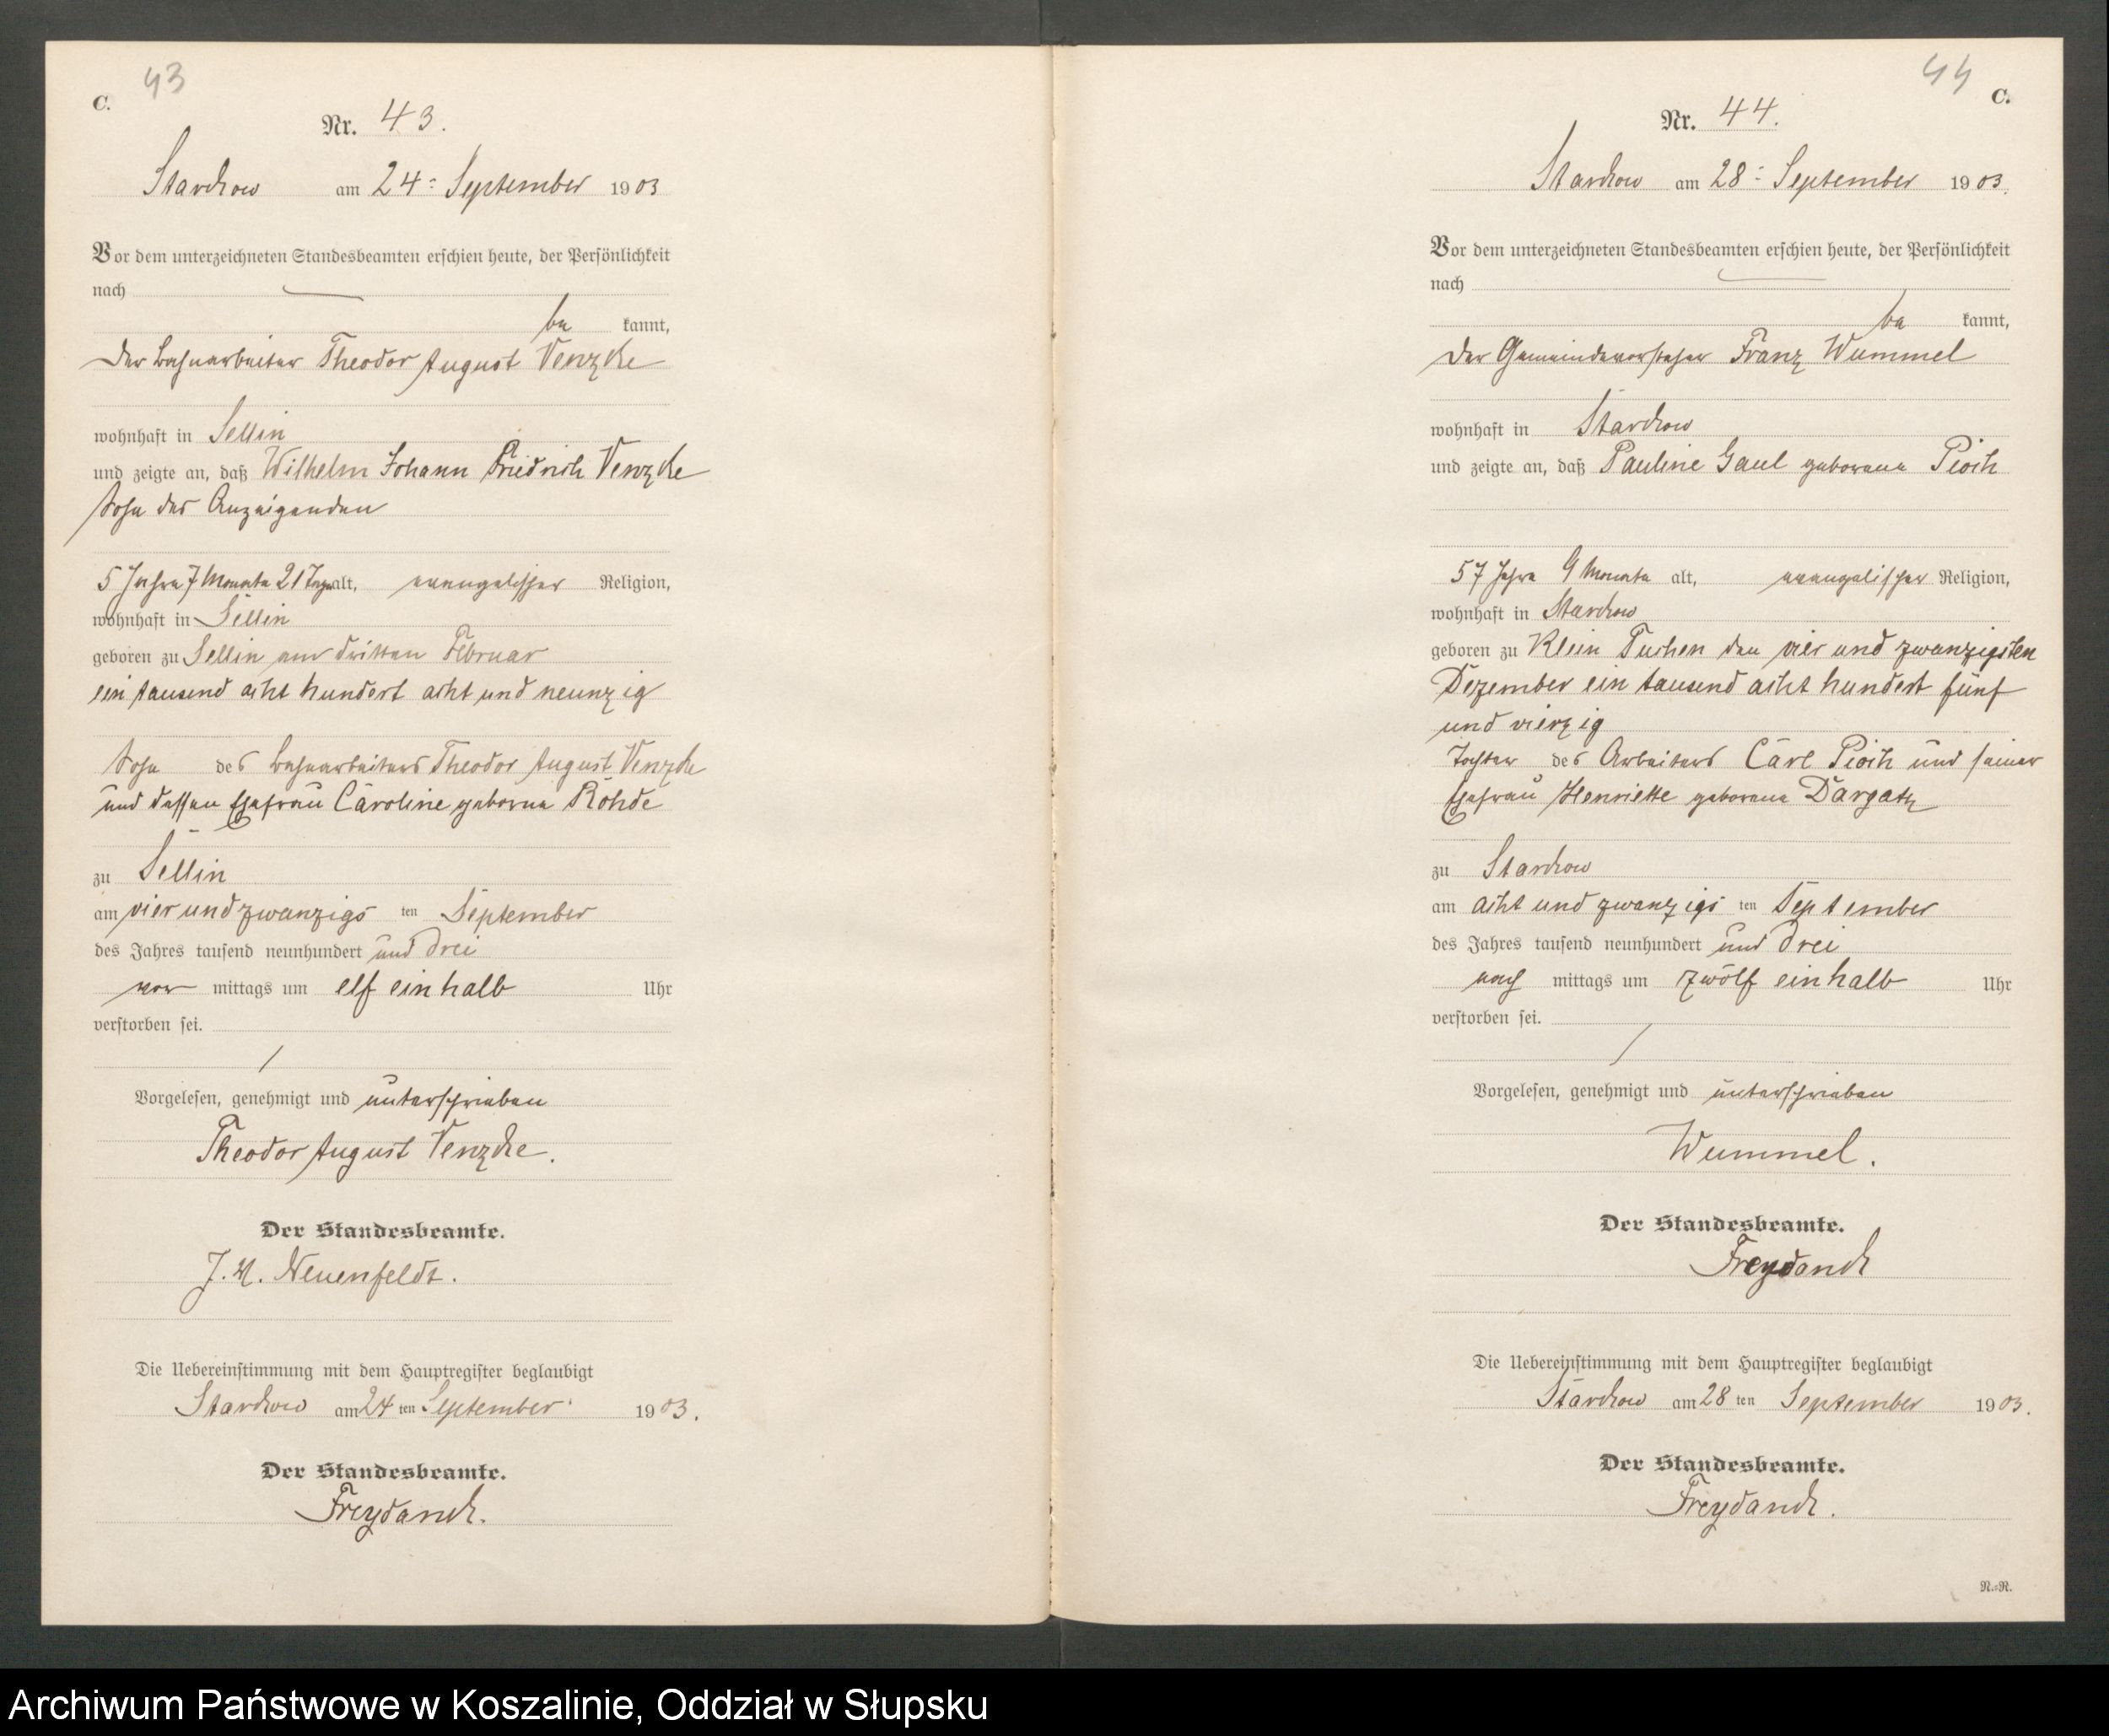 43
C.
Nr. 43.
Starckow am 24ᵗ September 1903
Vor dem unterzeichneten Standesbeamten erschien heute, der Persönlichkeit
nach
be kannt,
der Bahnarbeiter Theodor August Venzcke
wohnhaft in Sellin
und zeigte an, daß Wilhelm Johann Friedrich Venzcke
Sohn des Anzeigenden
5 Jahre 7 Monate 21 Tage alt, evangelischer Religion,
wohnhaft in Sellin
geboren zu Sellin am dritten Februar
ein tausend acht hundert acht und neunzig
Sohn des Bahnarbeiters Theodor August Venzcke
und dessen Ehefrau Caroline geborne Rohde
zu Sellin
am vier und zwanzigs ten September
des Jahres tausend neunhundert und drei
vor mittags um elf einhalb Uhr
verstorben sei.
Vorgelesen, genehmigt und unterschrieben
Theodor August Venzcke.
Der Standesbeamte.
J. V. Neuenfeldt.
Die Uebereinstimmung mit dem Hauptregister beglaubigt
Starckow am 24 ten September 1903.
Der Standesbeamte.
Freydanck.
44
C.
Nr. 44.
Starckow am 28ᵗ September 1903.
Vor dem unterzeichneten Standesbeamten erschien heute, der Persönlichkeit
nach
be kannt,
der Gemeindevorsteher Franz Wummel
wohnhaft in Starckow
und zeigte an, daß Pauline Gaul geborene Pioch
57 Jahre 9 Monate alt, evangelischer Religion,
wohnhaft in Starckow
geboren zu Klein Tuchen den vier und zwanzigsten
Dezember ein tausend acht hundert fünf
und vierzig
Tochter des Arbeiters Carl Pioch und seiner
Ehefrau Henriette geborene Dargatz
zu Starckow
am acht und zwanzigs ten September
des Jahres tausend neunhundert und drei
nach mittags um zwölf einhalb Uhr
verstorben sei.
Vorgelesen, genehmigt und unterschrieben
Wummel.
Der Standesbeamte.
Freydanck
Die Uebereinstimmung mit dem Hauptregister beglaubigt
Starckow am 28 ten September 1903.
Der Standesbeamte.
Freydanck.
N.-R.
Archiwum Państwowe w Koszalinie, Oddział w Słupsku